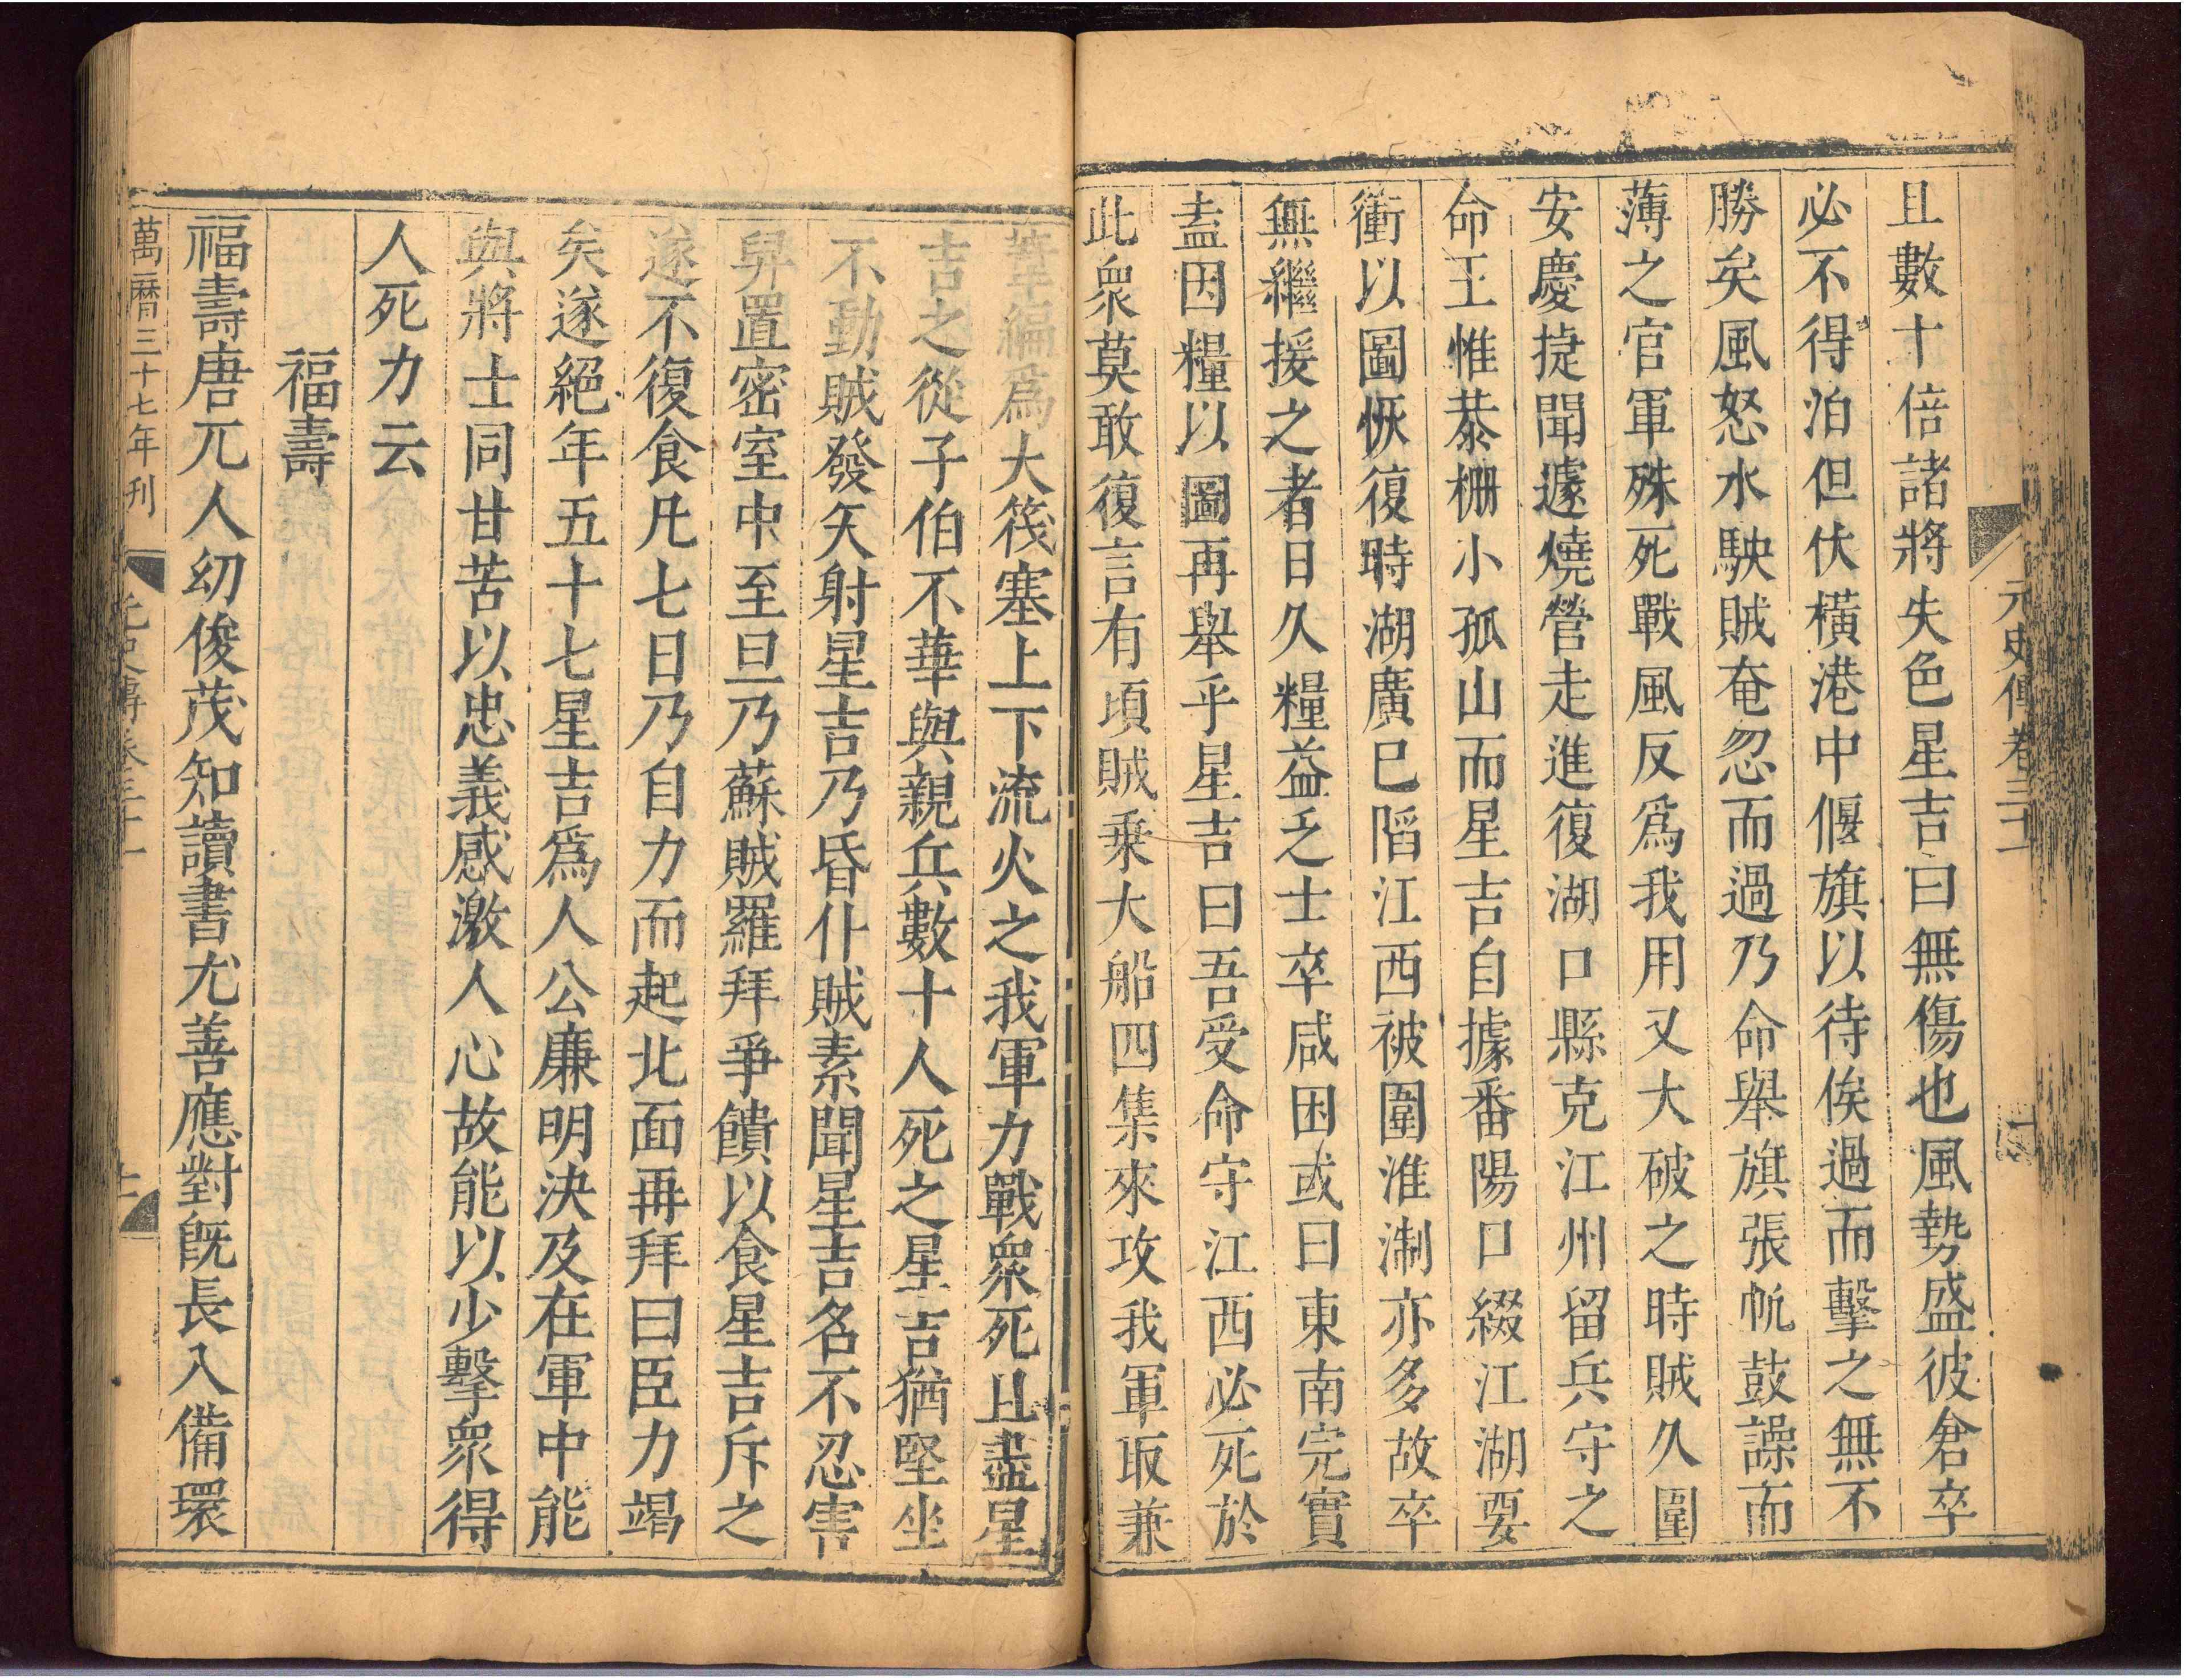 元史傳卷三十一
且數十倍諸將失色星吉曰無傷也風勢盛彼倉卒
必不得泊但伏橫港中偃旗以待俟過而擊之無不
勝矣風怒水駛賊奄忽而過乃命舉旗張帆鼓譟而
薄之官軍殊死戰風反爲我用又大破之時賊久圍
安慶捷聞遽燒營走進復湖口縣克江州留兵守之
命王惟恭栅小孤山而星吉自據番陽口綴江湖要
衝以圖恢復時湖廣已陷江西被圍淮淛亦多故卒
無繼援之者日久糧益乏士卒咸困或曰東南完實
盍因糧以圖再舉乎星吉曰吾受命守江西必死於
此衆莫敢復言有頃賊乗大船四集來攻我軍取兼
葦編爲大筏塞上下流火之我軍力戰衆死且盡星
吉之從子伯不華與親兵數十人死之星吉猶堅坐
不動賊發矢射星吉乃昏仆賊素聞星吉名不忍害
舁置密室中至旦乃蘇賊羅拜爭饋以食星吉斥之
遂不復食凡七日乃自力而起北面再拜曰臣力竭
矣遂絕年五十七星吉爲人公廉明決及在軍中能
與將士同甘苦以忠義感激人心故能以少擊衆得
人死力云
福壽
福壽唐兀人幼俊茂知讀書尤善應對旣長入備環
萬曆三十七年刊
元史傳卷三十一